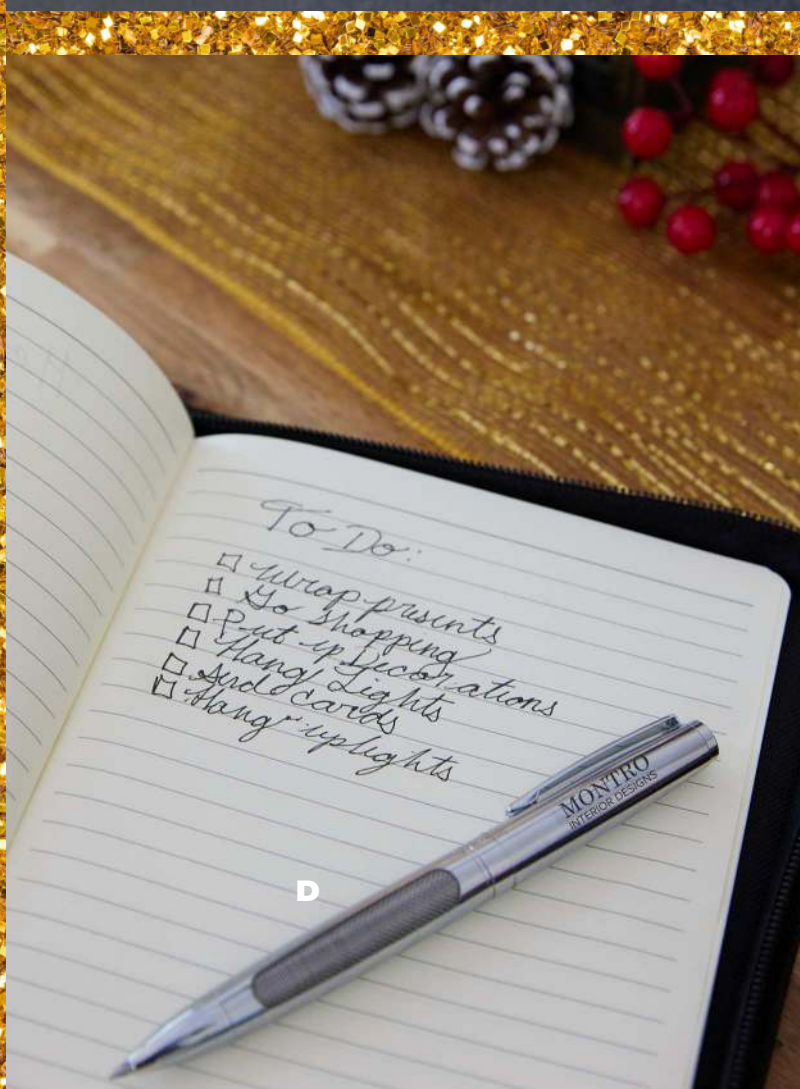 To Do:
wrap presents
Go shopping
Put up Decorations
Hang Lights
Send cards
Hang uplights
MONTRO
INTERIOR DESIGNS
D